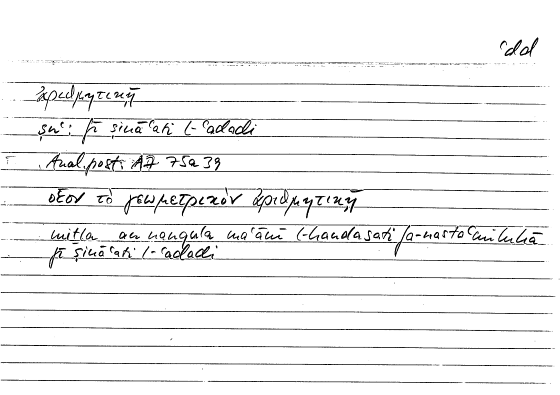 ʿdd
ἀριθμητικῇ
ṣnʿ: fī ṣināʿati l-ʿadadi
Anal. post. A7 75a39
οἷον τὸ γεωμετρικὸν ἀριθμητικῇ
miṯla an nanqula maʿānī l-handasati fa-nastaʿmiluhā
fī ṣināʿati l-ʿadadi